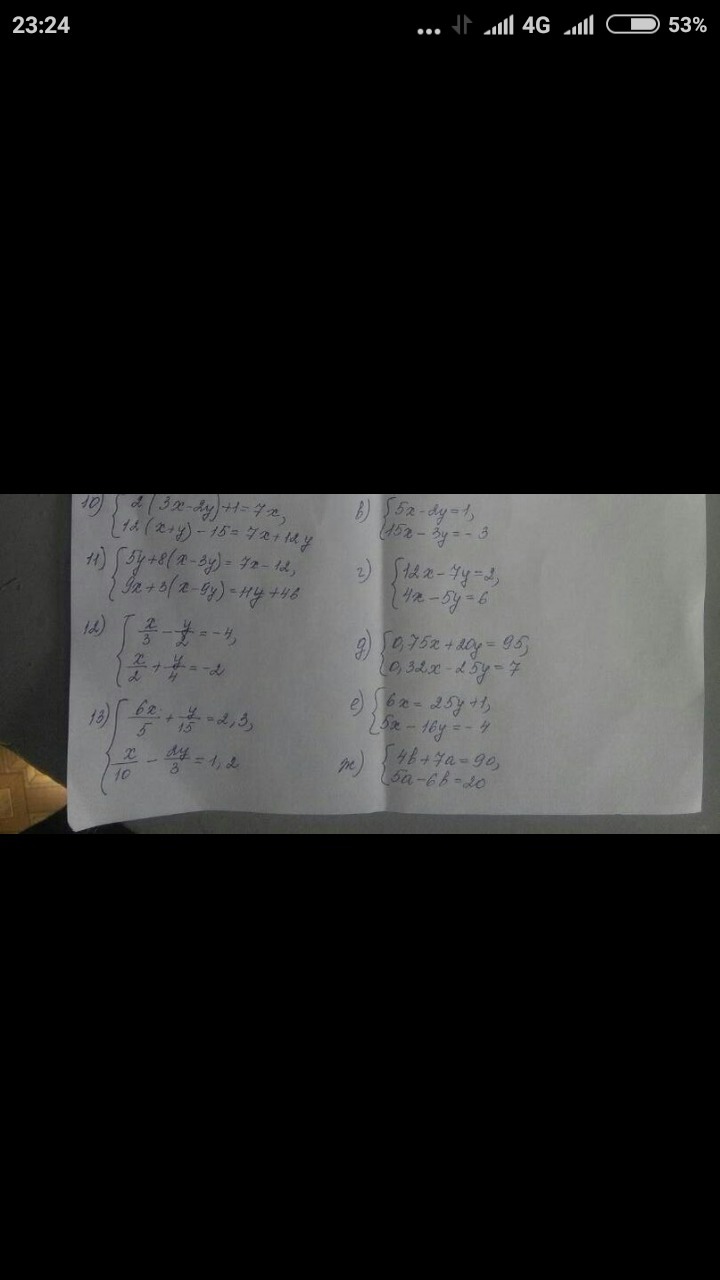 23:24
... 4G 53%
10) { 2(3x-2y)+1=7x,
12(x+y)-15=7x+12y
11) { 5y+8(x-3y)=7x-12,
9x+3(x-9y)=11y+46
12) { x/3 - y/2 = -4,
x/2 + y/4 = -2
13) { 6x/5 + y/15 = 2,3,
x/10 - 2y/3 = 1,2
в) { 5x-2y=1,
15x-3y=-3
г) { 12x-7y=2,
4x-5y=6
д) { 0,75x+20y=95,
0,32x-25y=7
е) { 6x=25y+1,
5x-16y=-4
ж) { 4b+7a=90,
5a-6b=20